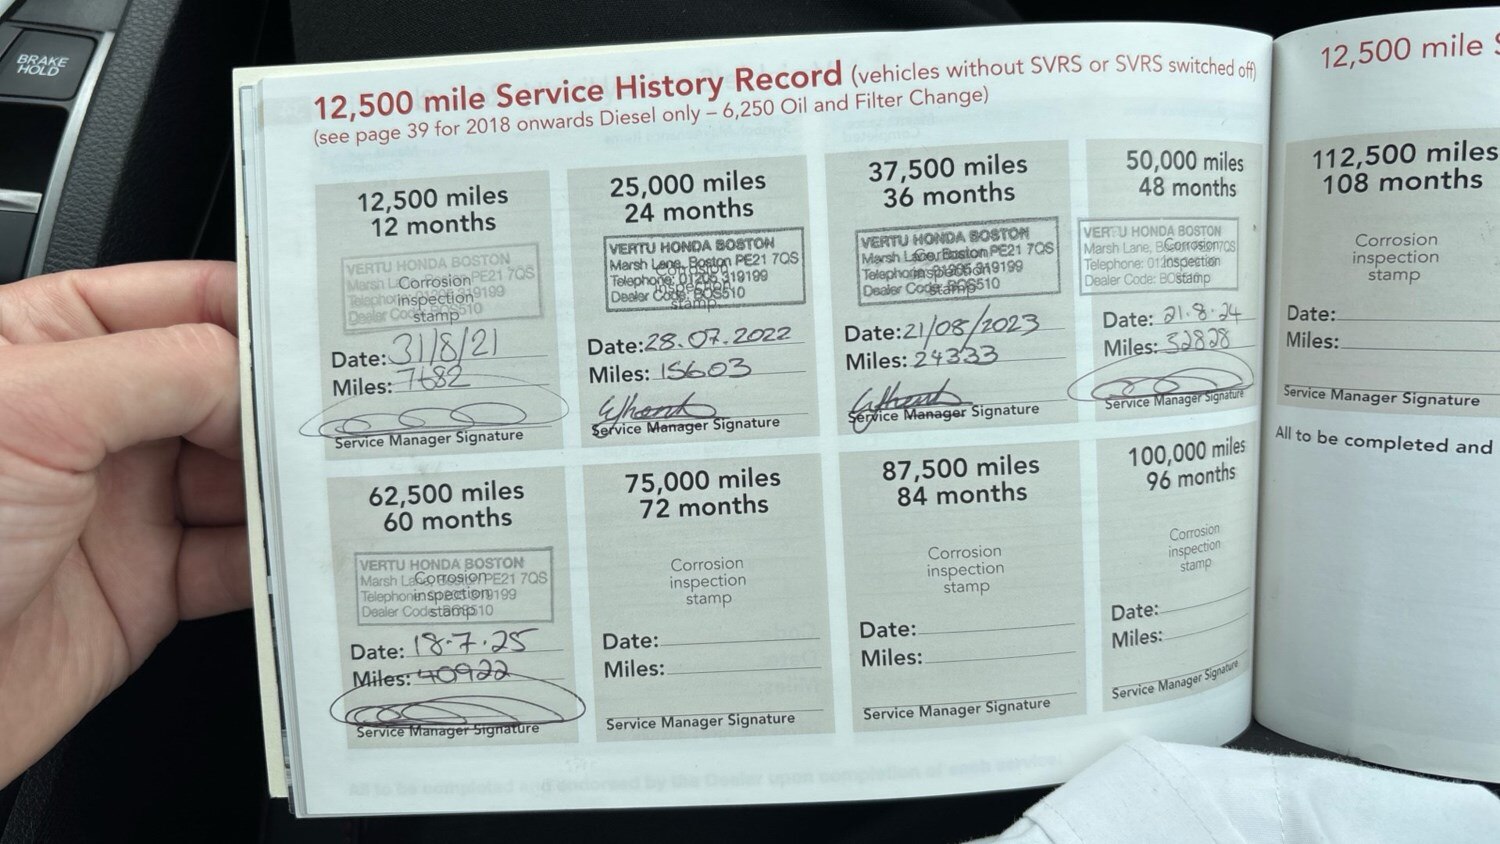 BRAKE
HOLD
12,500 mile Service History Record (vehicles without SVRS or SVRS switched off)
(see page 39 for 2018 onwards Diesel only – 6,250 Oil and Filter Change)
12,500 miles
12 months
VERTU HONDA BOSTON
Marsh Lane, Boston PE21 7QS
Telephone: 01205 319199
Dealer Code: BOS510
Corrosion
inspection
stamp
Date: 31/8/21
Miles: 7682
Service Manager Signature
25,000 miles
24 months
VERTU HONDA BOSTON
Marsh Lane, Boston PE21 7QS
Telephone: 01205 319199
Dealer Code: BOS510
Corrosion
inspection
stamp
Date: 28.07.2022
Miles: 15603
Service Manager Signature
37,500 miles
36 months
VERTU HONDA BOSTON
Marsh Lane, Boston PE21 7QS
Telephone: 01205 319199
Dealer Code: BOS510
Corrosion
inspection
stamp
Date: 21/08/2023
Miles: 24333
Service Manager Signature
50,000 miles
48 months
VERTU HONDA BOSTON
Marsh Lane, Boston PE21 7QS
Telephone: 01205 319199
Dealer Code: BOS510
Corrosion
inspection
stamp
Date: 21.8.24
Miles: 32828
Service Manager Signature
62,500 miles
60 months
VERTU HONDA BOSTON
Marsh Lane, Boston PE21 7QS
Telephone: 01205 319199
Dealer Code: BOS510
Corrosion
inspection
stamp
Date: 18.7.25
Miles: 40922
Service Manager Signature
75,000 miles
72 months
Corrosion
inspection
stamp
Date:
Miles:
Service Manager Signature
87,500 miles
84 months
Corrosion
inspection
stamp
Date:
Miles:
Service Manager Signature
100,000 miles
96 months
Corrosion
inspection
stamp
Date:
Miles:
Service Manager Signature
12,500 mile
112,500 miles
108 months
Corrosion
inspection
stamp
Date:
Miles:
Service Manager Signature
All to be completed and